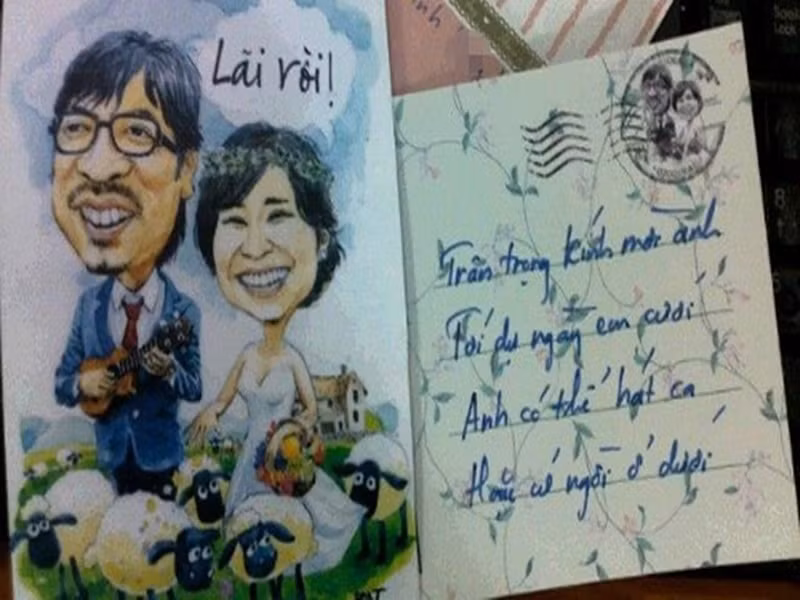 Lãi rồi!
Trân trọng kính mời anh
Tới dự ngày em cưới
Anh có thể hát ca
Hoặc cứ ngồi ở dưới